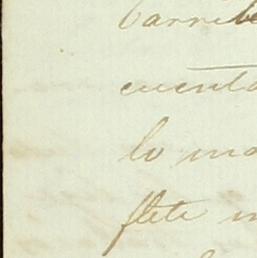 barrile
cuenta
lo ma
flete m